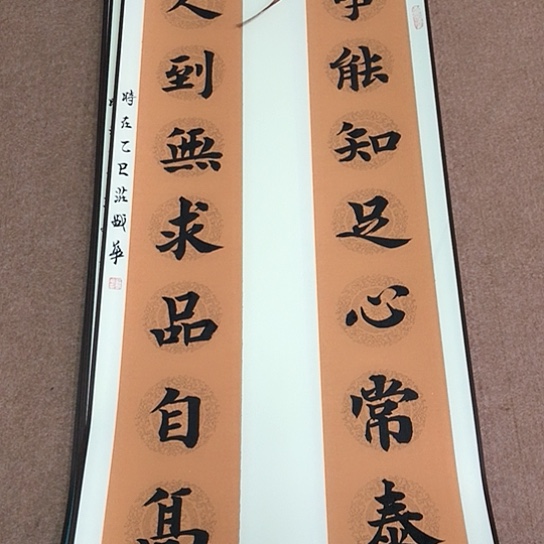 事能知足心常泰
人到無求品自高
時在乙巳